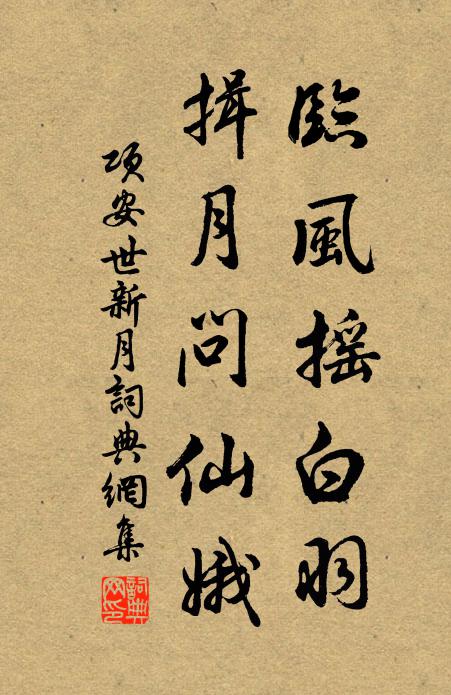 臨風搖白羽
揖月問仙娥
項安世新月詞典網集
詞典網印